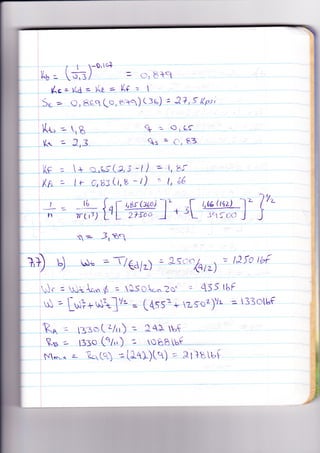 Kb = (1/0,3)^-0,107 = 0,879
Kc = Kd = Ke = Kf = 1
Se = 0,869 (0,879)(36) = 27,5 Kpsi
Kts = 1,8 q = 0,65
Kt = 2,3 qs = 0,83
Kf = 1 + 0,65(2,3 - 1) = 1,85
Kfs = 1 + 0,83(1,8 - 1) = 1,66
1/n = 16/π(1³) {4[1,85(360)/27500]² + 3[1,66(162)/39500]²}^1/2
n = 3,89
7,7) b) Wt = T/(d/2) = 2500/(4/2) = 1250 lbf
Wr = Wt tan ø = 1250 tan 20° = 455 lbf
W = [Wr² + Wt²]^1/2 = (455² + 1250²)^1/2 = 1330 lbf
RA = 1330 (2/11) = 242 lbf
RB = 1330 (9/11) = 1088 lbf
Mmax = RA(9) = (242)(9) = 2178 lbf